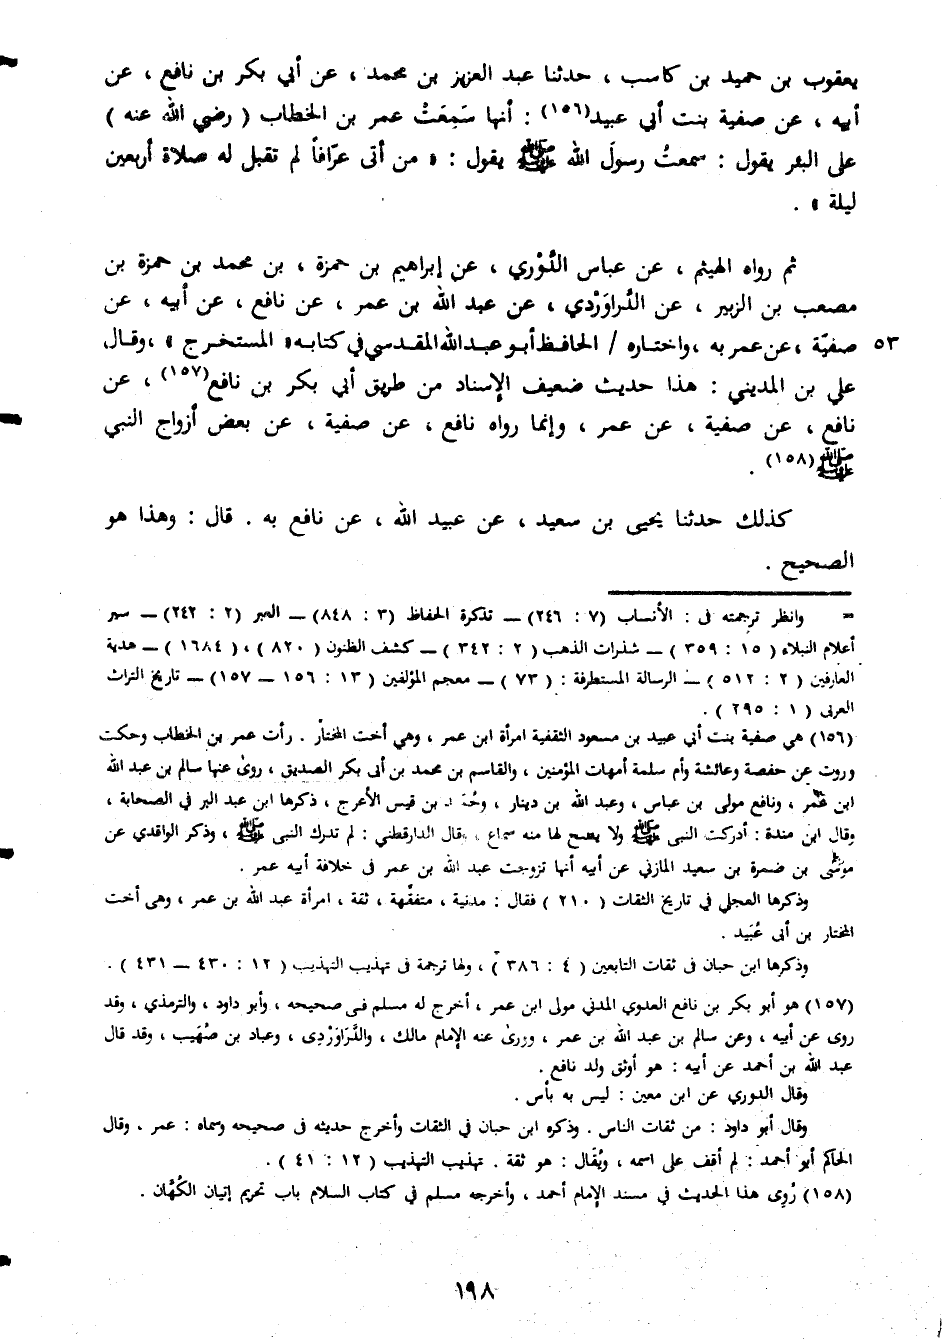 يعقوب بن حميد بن كاسب ، حدثنا عبد العزيز بن محمد ، عن أبي بكر بن نافع ، عن
أبيه ، عن صفية بنت أبي عبيد(١٥٦) : أنها سَمِعَتْ عمر بن الخطاب ( رضي الله عنه )
على البئر يقول : سمعتُ رسولَ الله ﷺ يقول : « من أتى عرّافاً لم تقبل له صلاة أربعين
ليلة » .
ثم رواه الهيثم ، عن عباس الدُّوْري ، عن إبراهيم بن حمزة ، بن محمد بن حمزة بن
مصعب بن الزبير ، عن الدَّراوَرْدي ، عن عبد الله بن عمر ، عن نافع ، عن أبيه ، عن
صفيّة ، عن عمر به ، واختاره / الحافظ أبو عبد الله المقدسي في كتابه « المستخرج » ، وقال ٥٣
علي بن المديني : هذا حديث ضعيف الإسناد من طريق أبي بكر بن نافع(١٥٧) ، عن
نافع ، عن صفية ، عن عمر ، وإنما رواه نافع ، عن صفية ، عن بعض أزواج النبي
ﷺ(١٥٨) .
كذلك حدثنا يحيى بن سعيد ، عن عبيد الله ، عن نافع به . قال : وهذا هو
الصحيح .
= وانظر ترجمته في : الأنساب (٧ : ٢٤٦) — تذكرة الحفاظ (٣ : ٨٤٨) — العبر (٢ : ٢٤٢) — سير
أعلام النبلاء ( ١٥ : ٣٥٩ ) — شذرات الذهب ( ٢ : ٣٤٢ ) — كشف الظنون ( ٨٢٠ ) ، ( ١٦٨٤ ) — هدية
العارفين ( ٢ : ٥١٢ ) — الرسالة المستطرفة : ( ٧٣ ) — معجم المؤلفين ( ١٣ : ١٥٦ — ١٥٧) — تاريخ التراث
العربى ( ١ : ٢٩٥ ) .
(١٥٦) هي صفية بنت أبي عبيد بن مسعود الثقفية امرأة ابن عمر ، وهي أخت المختار . رأت عمر بن الخطاب وحكت
وروت عن حفصة وعائشة وأم سلمة أمهات المؤمنين ، والقاسم بن محمد بن أبى بكر الصديق ، روىٰ عنها سالم بن عبد الله
ابن عُمر ، ونافع مولى بن عباس ، وعبد الله بن دينار ، وحُمَيد بن قيس الأعرج ، ذكرها ابن عبد البر في الصحابة ،
وقال ابن مندة : أدركت النبى ﷺ ولا يصح لها منه سماع ، وقال الدارقطني : لم تدرك النبى ﷺ ، وذكر الواقدي عن
موسَٰى بن ضمرة بن سعيد المازني عن أبيه أنها تزوجت عبد الله بن عمر فى خلافة أبيه عمر .
وذكرها العجلي في تاريخ الثقات ( ٢١٠ ) فقال : مدنية ، متفقّهة ، ثقة ، امرأة عبد الله بن عمر ، وهى أخت
المختار بن أبى عُبَيد .
وذكرها ابن حبان فى ثقات التابعين ( ٤ : ٣٨٦ ) ، ولها ترجمة فى تهذيب التهذيب ( ١٢ : ٤٣٠ — ٤٣١ ) .
(١٥٧) هو أبو بكر بن نافع العدوي المدني مولى ابن عمر ، أخرج له مسلم فى صحيحه ، وأبو داود ، والترمذي ، وقد
روى عن أبيه ، وعن سالم بن عبد الله بن عمر ، وروىٰ عنه الإمام مالك ، والدَّرَاوَرْدِى ، وعباد بن صُهَيب ، وقد قال
عبد الله بن أحمد عن أبيه : هو أوثق ولد نافع .
وقال الدوري عن ابن معين : ليس به بأس .
وقال أبو داود : من ثقات الناس . وذكره ابن حبان في الثقات وأخرج حديثه فى صحيحه وسماه : عمر ، وقال
الحاكم أبو أحمد : لم أقف على اسمه ، ويُقَال : هو ثقة . تهذيب التهذيب ( ١٢ : ٤١ ) .
(١٥٨) رُوِى هذا الحديث في مسند الإمام أحمد ، وأخرجه مسلم في كتاب السلام باب تحريم إتيان الكُهَّان .
١٩٨